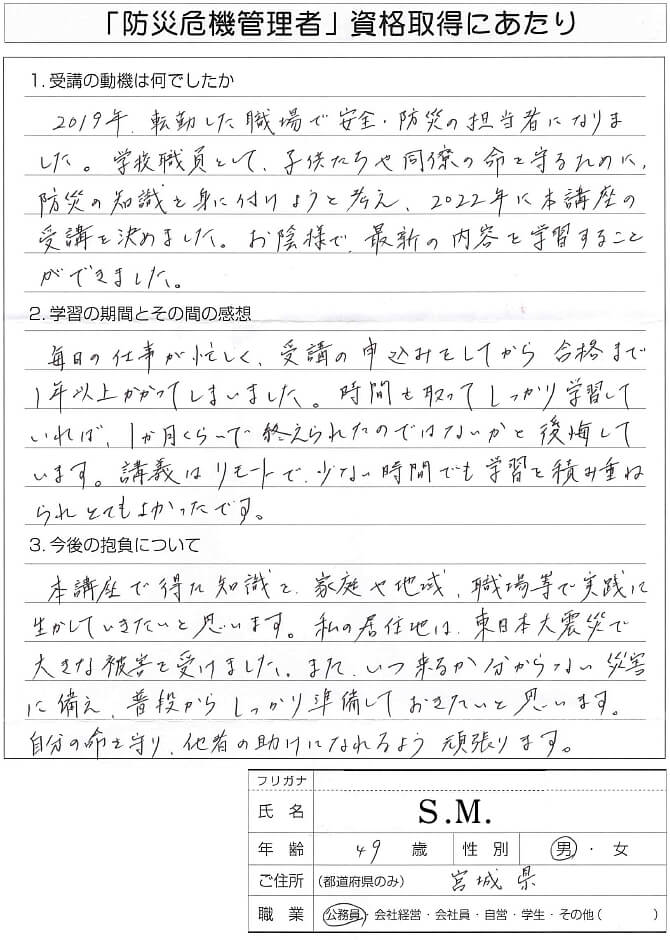 「防災危機管理者」資格取得にあたり
1. 受講の動機は何でしたか
2019年、転勤した職場で安全・防災の担当者になりま
した。学校職員として、子供たちや同僚の命を守るために、
防災の知識を身に付けようと考え、2022年に本講座の
受講を決めました。お陰様で、最新の内容を学習すること
ができました。
2. 学習の期間とその間の感想
毎日の仕事が忙しく、受講の申込みをしてから合格まで
1年以上かかってしまいました。時間を取ってしっかり学習して
いれば、1か月くらいで終えられたのではないかと後悔して
います。講義はリモートで、少ない時間でも学習を積み重ね
られとてもよかったです。
3. 今後の抱負について
本講座で得た知識を、家庭や地域、職場等で実践に
生かしていきたいと思います。私の居住地は、東日本大震災で
大きな被害を受けました。また、いつ来るか分からない災害
に備え、普段からしっかり準備しておきたいと思います。
自分の命を守り、他者の助けになれるよう頑張ります。
フリガナ
氏名 S.M.
年齢 49 歳 性別 男・女
ご住所 (都道府県のみ) 宮城県
職業 公務員・会社経営・会社員・自営・学生・その他( )